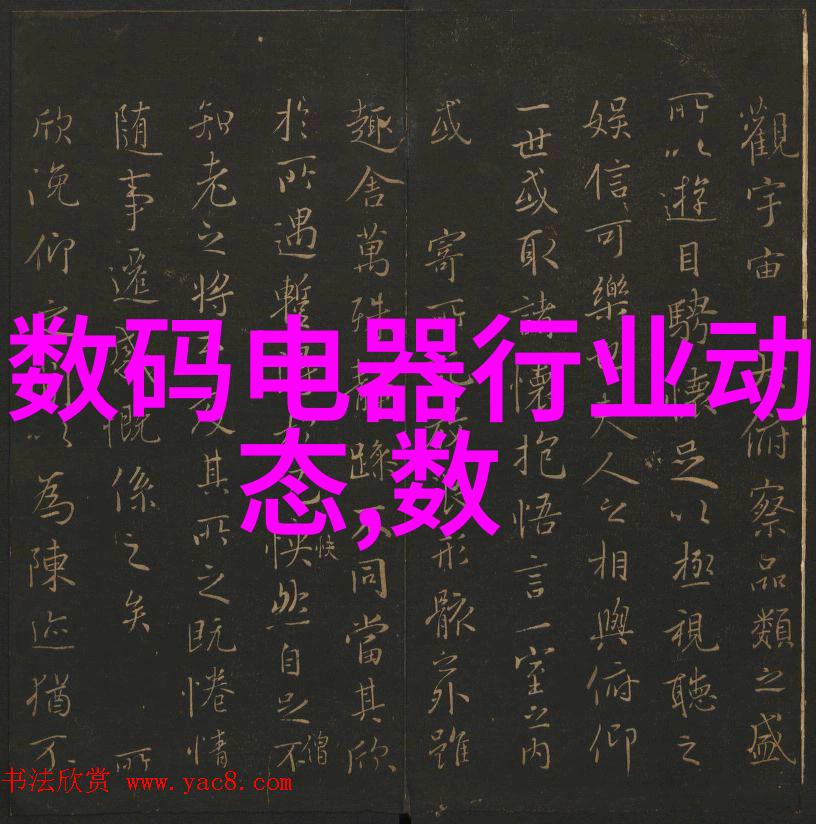 觀宇宙俯察品類之盛
所以遊目騁懷足以極視聽之
娱信可樂夫人之相與俯仰
一世或取諸懷抱悟言一室之内
或寄所形骸之外雖
趣舍萬殊躁不同當其欣
於所遇暫快然自足不
快
僧
知老之將及其所之既惓情
随事遷感慨係之矣所
欣俛仰以為陳迹猶不
数码电器行业动
态,数
书法欣赏 www.yac8.com